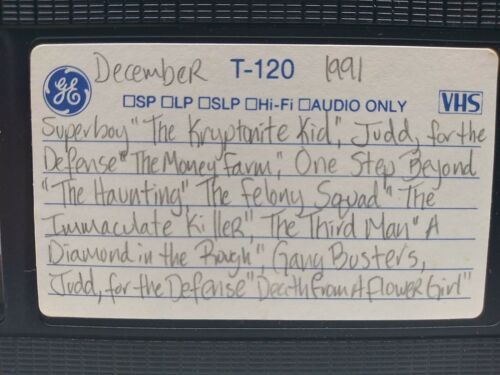 December T-120 1991
GE
□SP □LP □SLP □Hi-Fi □AUDIO ONLY VHS
Superboy "The Kryptonite Kid", Judd, for the
Defense "The Money Farm", One Step Beyond
"The Haunting", The Felony Squad "The
Immaculate Killer", The Third Man "A
Diamond in the Rough", Gang Busters,
Judd, for the Defense "Death From A Flower Girl"